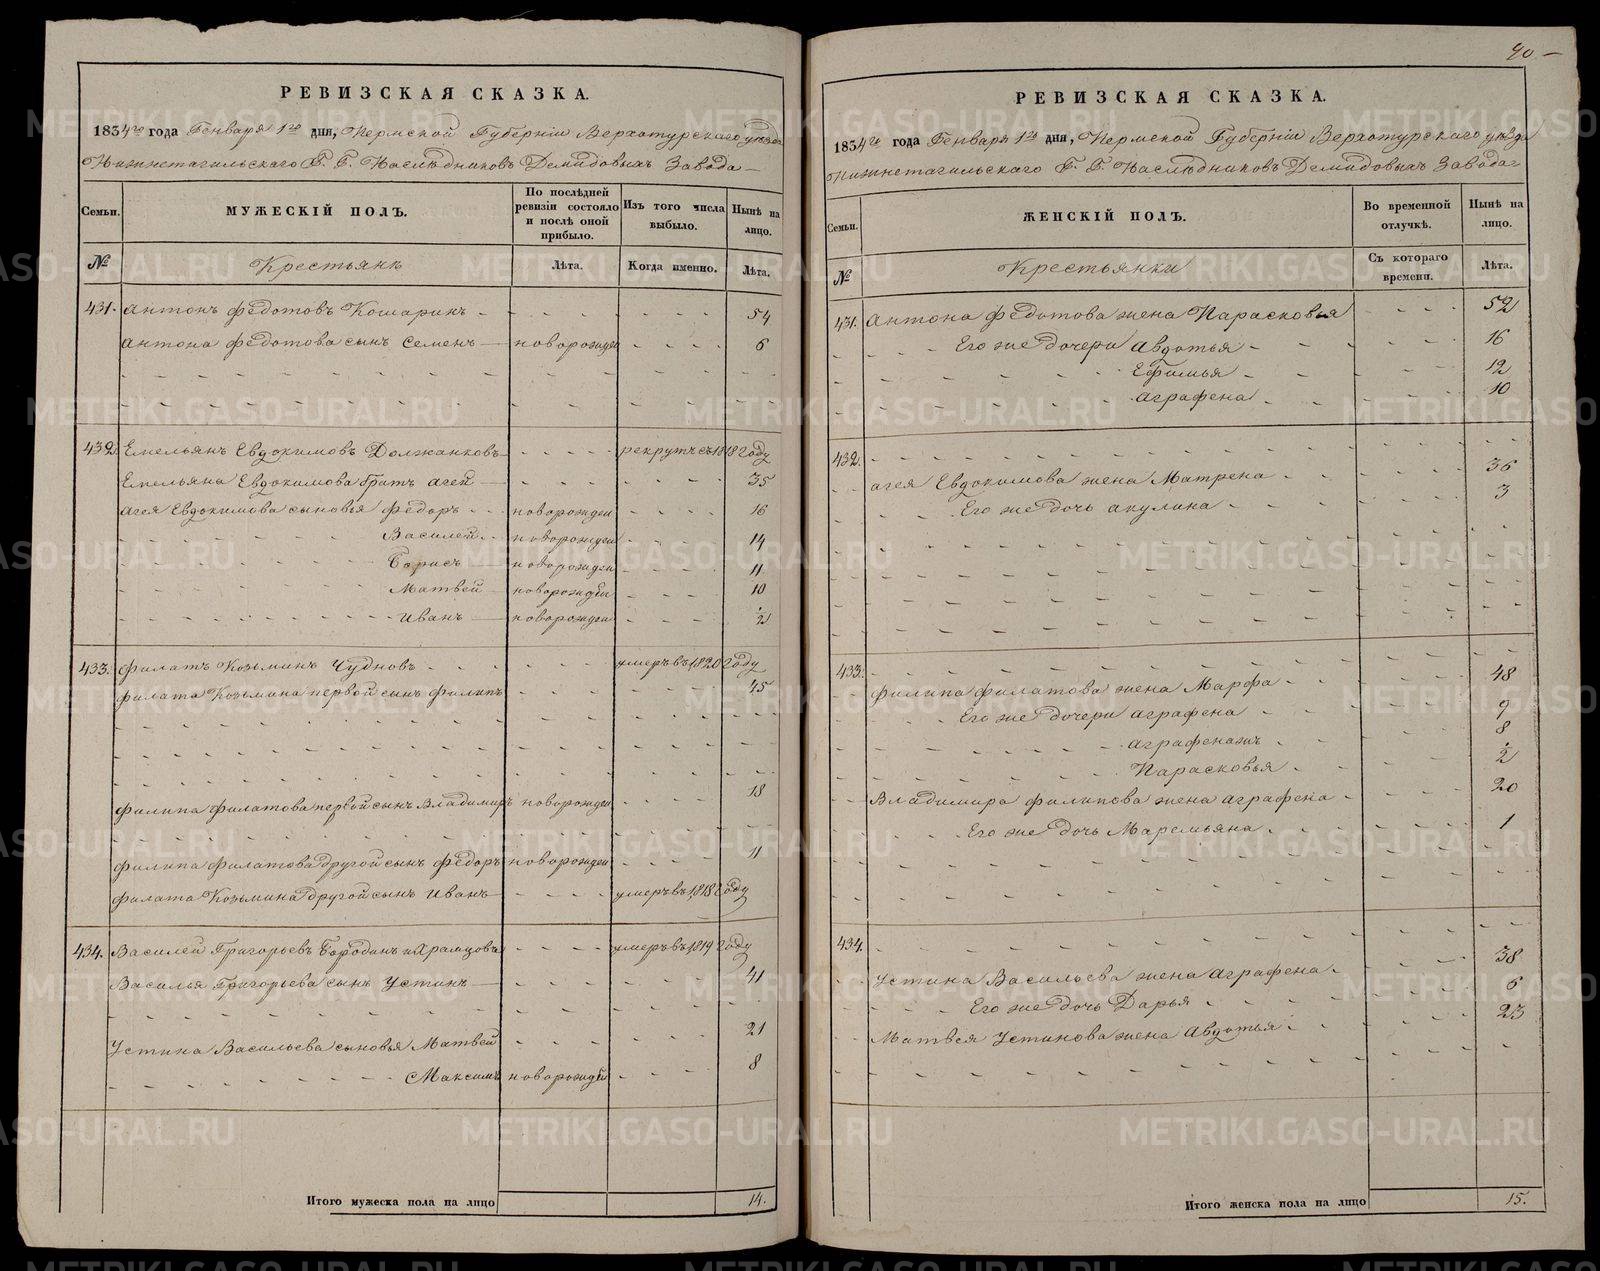 РЕВИЗСКАЯ СКАЗКА.
1834го года Генваря 1го дня, Пермской Губернiи Верхотурскаго уѣзда
Нижнетагильскаго Г. Г. Наслѣдниковъ Демидовыхъ Завода
Семьи.
МУЖЕСКІЙ ПОЛЪ.
По послѣдней ревизіи состояло и послѣ оной прибыло.
Изъ того числа выбыло.
Нынѣ на лицо.
№
Крестьянъ
Лѣта.
Когда именно.
Лѣта.
431. Антонъ Федотовъ Кошаринъ 54
Антона Федотова сынъ Семенъ новорожден 6
432. Емельянъ Евдокимовъ Должанковъ рекрутъ съ 1818 году
Емельяна Евдокимова братъ Агей 35
Агея Евдокимова сыновья Федоръ новорожден 16
Василей новорожден 14
Борисъ новорожден 11
Матвей новорожден 10
Иванъ новорожден ½
433. Филатъ Козьминъ Чудновъ умеръ въ 1820 году
Филата Козьмина первой сынъ Филипъ 45
Филипа Филатова первой сынъ Владимиръ новорожден 18
Филипа Филатова другой сынъ Федоръ новорожден 11
Филата Козьмина другой сынъ Иванъ умеръ въ 1818 году
434. Василей Григорьевъ Бородинъ и Храмцовъ умеръ въ 1819 году
Василья Григорьева сынъ Устинъ 41
Устина Васильева сыновья Матвей 21
Максимъ новорожден 8
Итого мужеска пола на лицо 14.
40
РЕВИЗСКАЯ СКАЗКА.
1834го года Генваря 1го дня, Пермской Губернiи Верхотурскаго уѣзда
Нижнетагильскаго Г. Г. Наслѣдниковъ Демидовыхъ Завода
Семьи.
ЖЕНСКІЙ ПОЛЪ.
Во временной отлучкѣ.
Нынѣ на лицо.
№
Крестьянки
Съ котораго времени.
Лѣта.
431. Антона Федотова жена Парасковья 52
Его же дочери Авдотья 16
Ефимья 12
Аграфена 10
432.
Агея Евдокимова жена Матрена 36
Его же дочь Акулина 3
433.
Филипа Филатова жена Марфа 48
Его же дочери Аграфена 9
Аграфена жъ 8
Парасковья ½
Владимира Филипова жена Аграфена 20
Его же дочь Маремьяна 1
434.
Устина Васильева жена Аграфена 38
Его же дочь Дарья 6
Матвея Устинова жена Авдотья 23
Итого женска пола на лицо 15.
METRIKI.GASO-URAL.RU